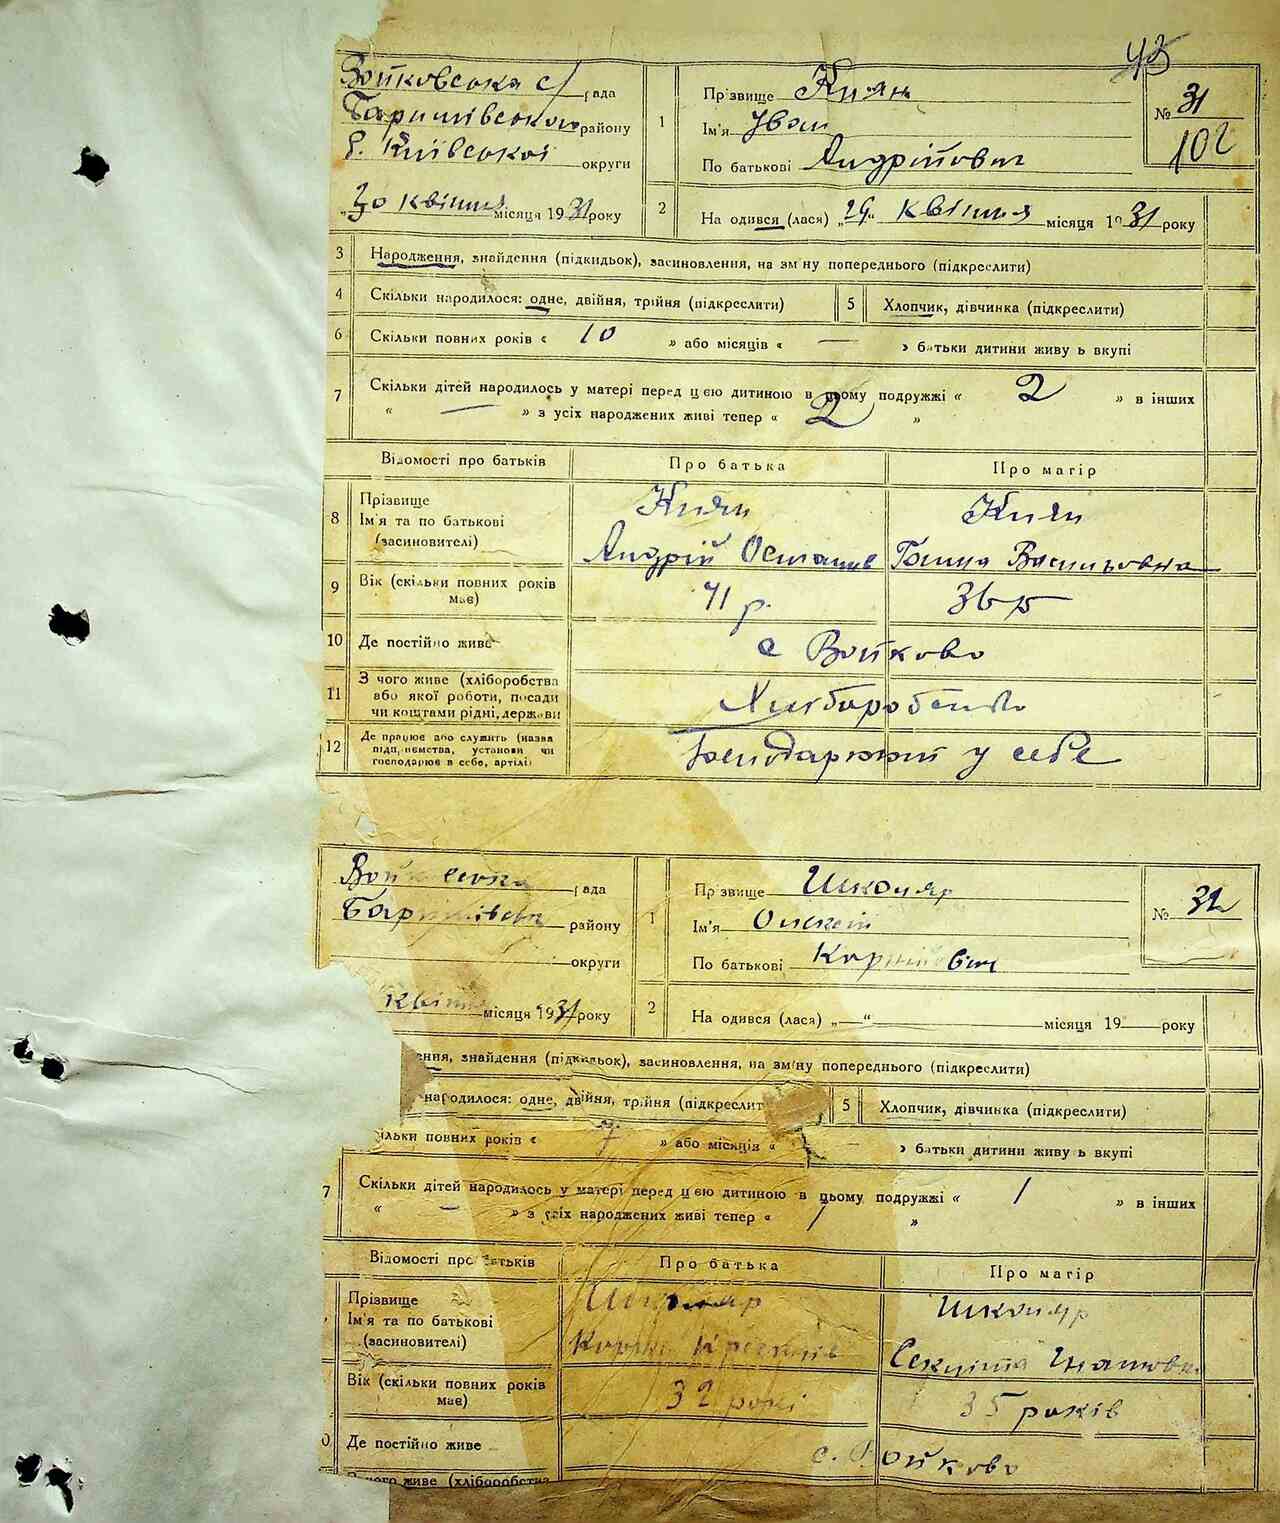 43
Войковська с/рада
Баришівського району
Київської округи
"30" квітня місяця 1931 року
1
Прізвище Киян
Ім'я Іван
По батькові Андрійович
№ 31
102
2
На одився (лася) „29" квітня місяця 1931 року
3 Народження, знайдення (підкидьок), засиновлення, на зміну попереднього (підкреслити)
4 Скільки народилося: одне, двійня, трійня (підкреслити) 5 Хлопчик, дівчинка (підкреслити)
6 Скільки повних років « 10 » або місяців « — » батьки дитини живу ь вкупі
7 Скільки дітей народилось у матері перед цією дитиною в цьому подружжі « 2 » в інших
« — » з усіх народжених живі тепер « 2 »
Відомості про батьків Про батька Про матір
8 Прізвище
Ім'я та по батькові
(засиновителі)
Киян
Андрій Остапів
Киян
Ганна Васильовна
9 Вік (скільки повних років має) 41 р. 36 р
10 Де постійно живе с Войково
11 З чого живе (хліборобства
або якої роботи, посади
чи коштами рідні, держави
Хліборобство
12 Де працює або служить (назва
підприємства, установи чи
господарює в себе, артілі)
у себе
рада
району
округи
квітня місяця 1931 року
1
Прізвище Школяр
Ім'я Олексій
По батькові Корнійович
№ 32
2
На одився (лася) „—" місяця 19— року
ення, знайдення (підкидьок), засиновлення, на зміну попереднього (підкреслити)
народилося: одне, двійня, трійня (підкреслит 5 Хлопчик, дівчинка (підкреслити)
ільки повних років « 7 » або місяців « » батьки дитини живу ь вкупі
7 Скільки дітей народилось у матері перед цією дитиною в цьому подружжі « 1 » в інших
« — » з усіх народжених живі тепер « 1 »
Відомості про батьків Про батька Про матір
Прізвище
Ім'я та по батькові
(засиновителі)
Школяр
Школяр
Вік (скільки повних років має) 32 років 35 років
0 Де постійно живе с. Войково
З чого живе (хліборобства